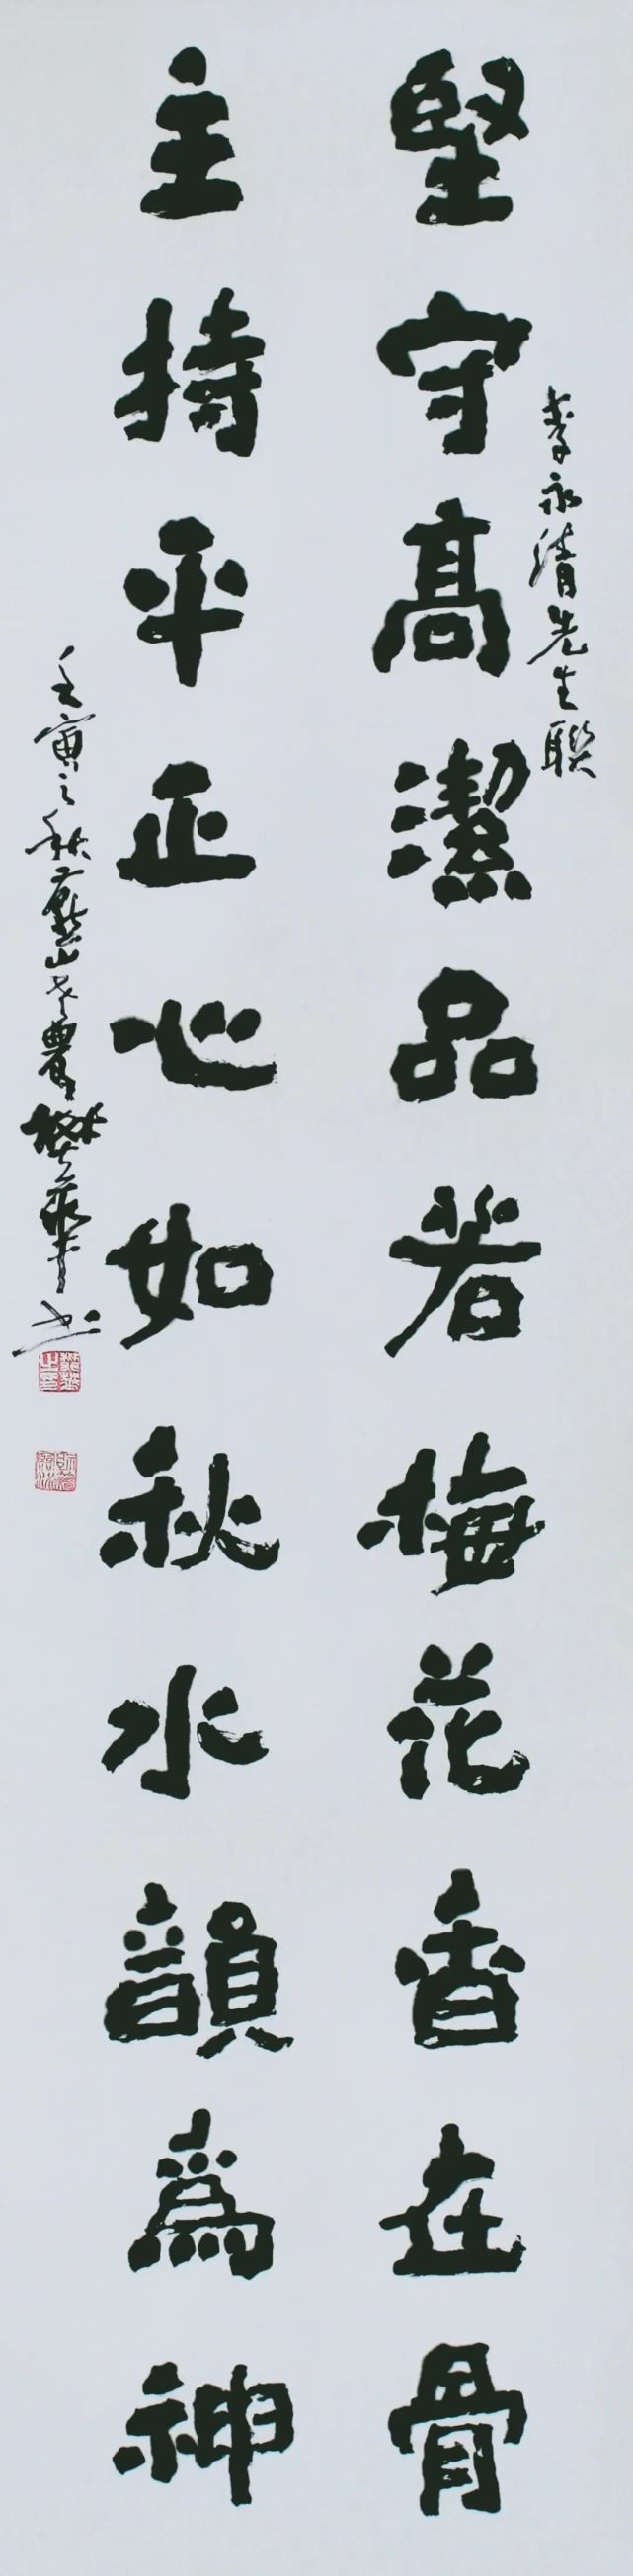 堅守高潔品若梅花香在骨
李永清先生聯
主持平正心如秋水韻為神
壬寅之秋 山老農樊 書